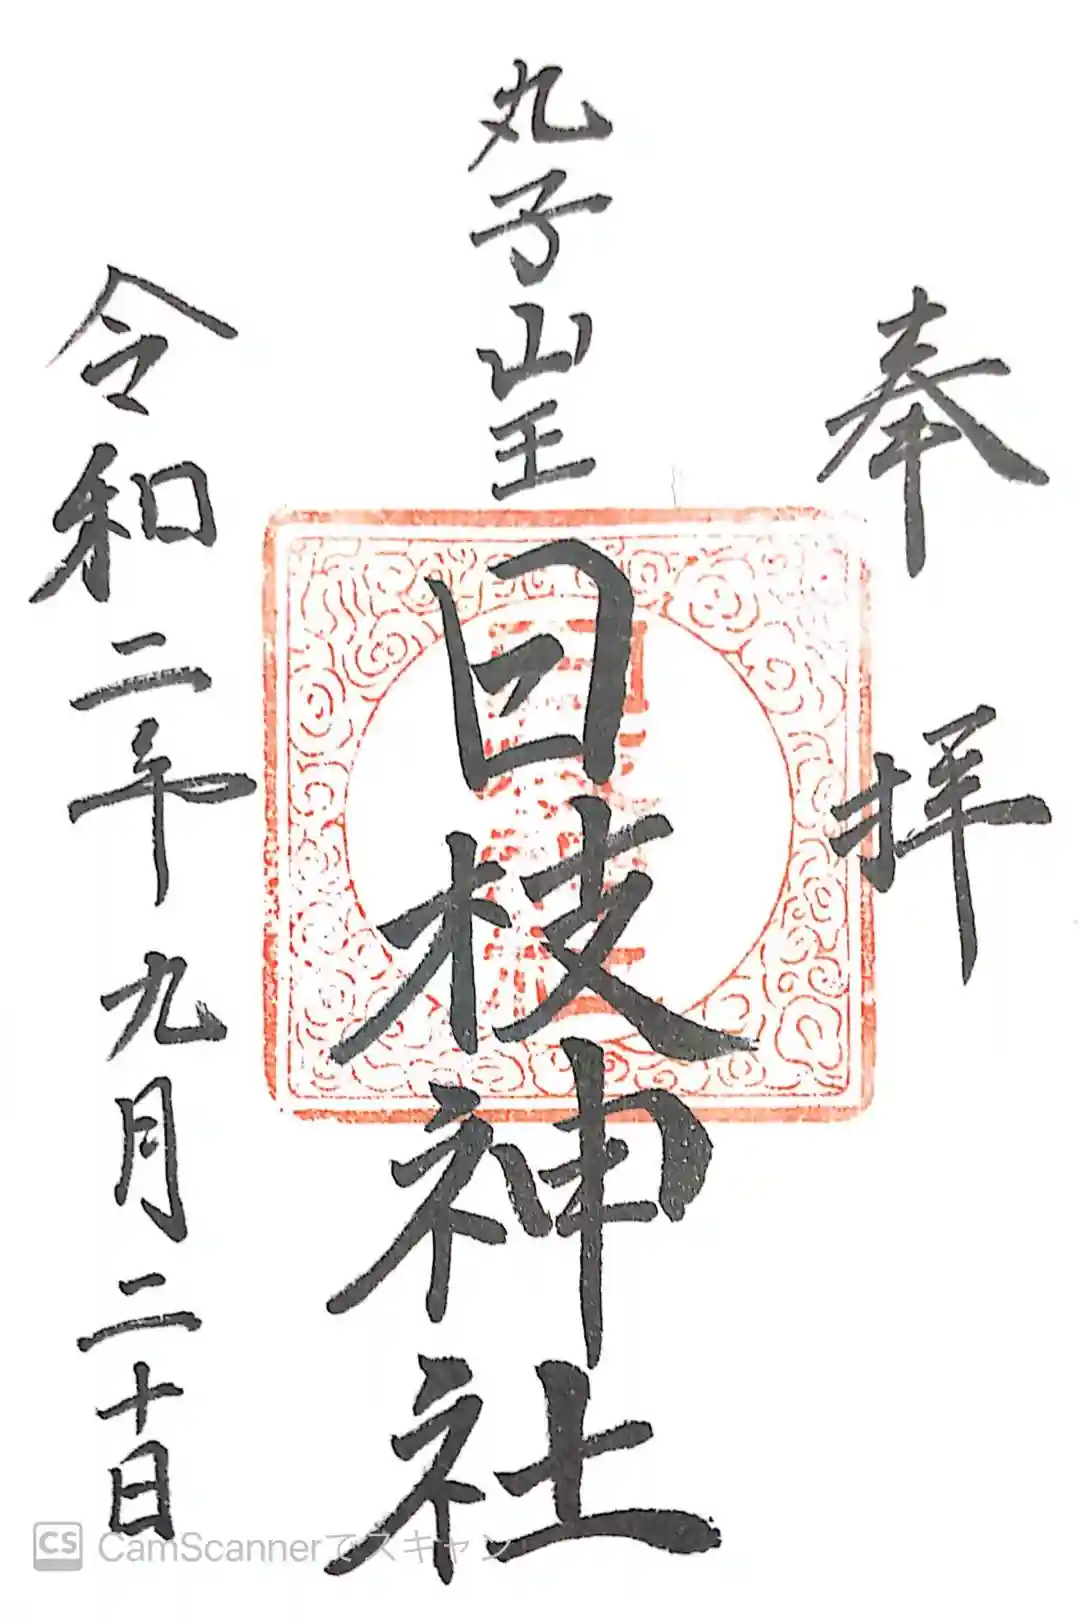 奉拝
丸子山王
日枝神社
令和二年九月二十日
CS CamScannerでスキャン